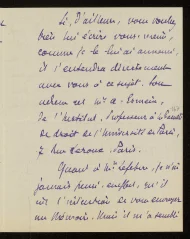 Si, d'ailleurs, vous voulez
bien lui écrire vous-même,
comme je le lui ai annoncé,
il s'entendra directement
avec vous à ce sujet. Son
adresse est Mr
de l'Institut, Professeur à la Faculté
de droit de l'Université de Paris,
7 Rue Paris.
Quant à Mr Lefebvre, je n'ai
jamais pensé, en effet, qu'il
eût l'intention de vous envoyer
un Mémoire. Mais il m'a semblé